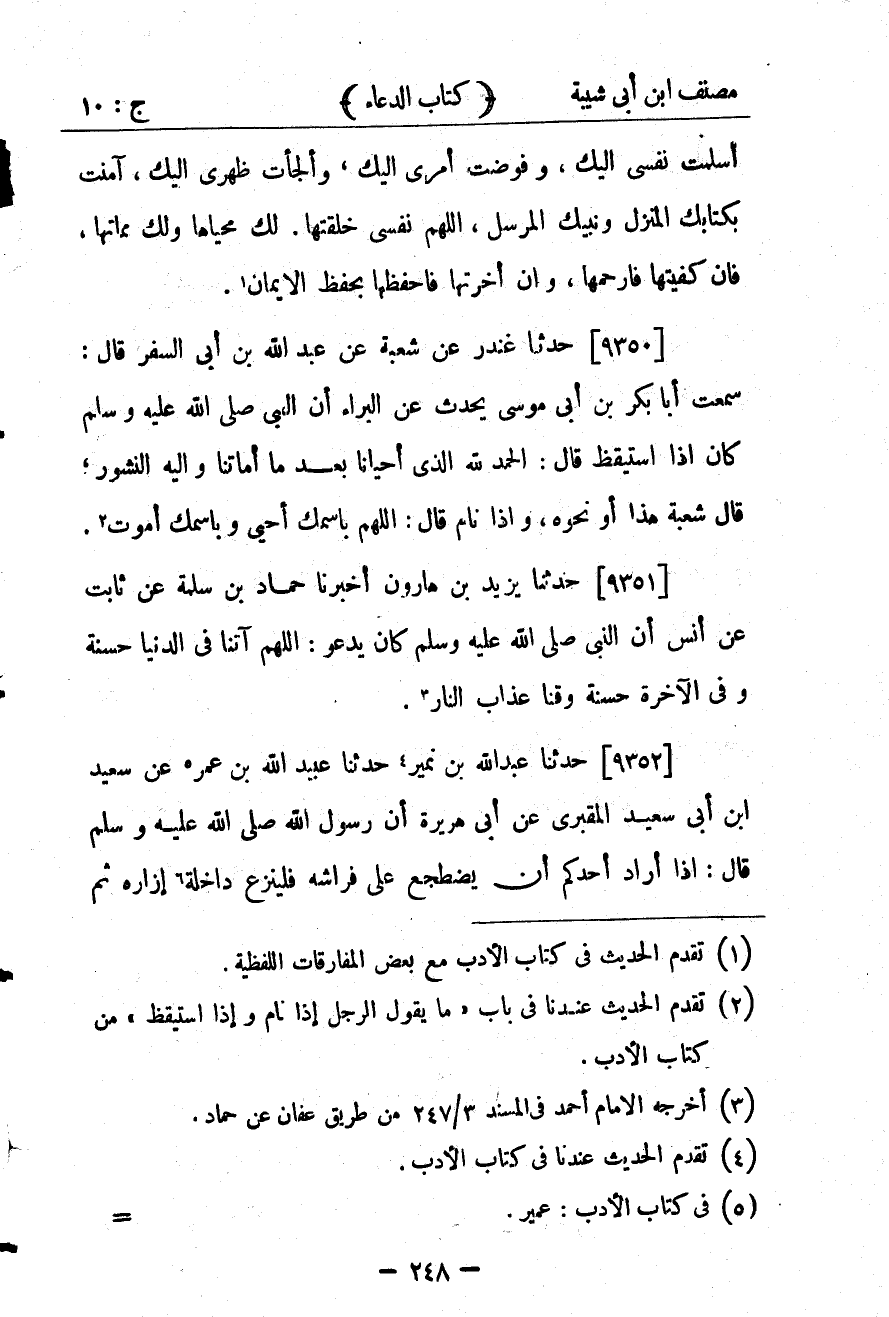 مصنف ابن أبى شيبة ﴿ كتاب الدعاء ﴾ ج : ١٠
أسلمت نفسى اليك ، و فوضت أمرى اليك ، وألجأت ظهرى اليك ، آمنت
بكتابك المنزل ونبيك المرسل ، اللهم نفسى خلقتها . لك محياها ولك مماتها ،
فان كفيتها فارحمها ، و ان أخرتها فاحفظها بحفظ الايمان١ .
[٩٣٥٠] حدثنا غندر عن شعبة عن عبد الله بن أبى السفر قال :
سمعت أبا بكر بن أبى موسى يحدث عن البراء أن النبى صلى الله عليه و سلم
كان اذا استيقظ قال : الحمد لله الذى أحيانا بعد ما أماتنا و اليه النشور ؛
قال شعبة هذا أو نحوه ، و اذا نام قال : اللهم باسمك أحيى و باسمك أموت٢ .
[٩٣٥١] حدثنا يزيد بن هارون أخبرنا حماد بن سلمة عن ثابت
عن أنس أن النبى صلى الله عليه وسلم كان يدعو : اللهم آتنا فى الدنيا حسنة
و فى الآخرة حسنة وقنا عذاب النار٣ .
[٩٣٥٢] حدثنا عبدالله بن نمير٤ حدثنا عبيد الله بن عمر٥ عن سعيد
ابن أبى سعيد المقبرى عن أبى هريرة أن رسول الله صلى الله عليه و سلم
قال : اذا أراد أحدكم أن يضطجع على فراشه فلينزع داخلة٦ إزاره ثم
(١) تقدم الحديث فى كتاب الأدب مع بعض المفارقات اللفظية .
(٢) تقدم الحديث عندنا فى باب « ما يقول الرجل إذا نام و إذا استيقظ » من
كتاب الأدب .
(٣) أخرجه الامام أحمد فى المسند ٢٤٧/٣ من طريق عفان عن حماد .
(٤) تقدم الحديث عندنا فى كتاب الأدب .
(٥) فى كتاب الأدب : عمير . =
– ٢٤٨ –